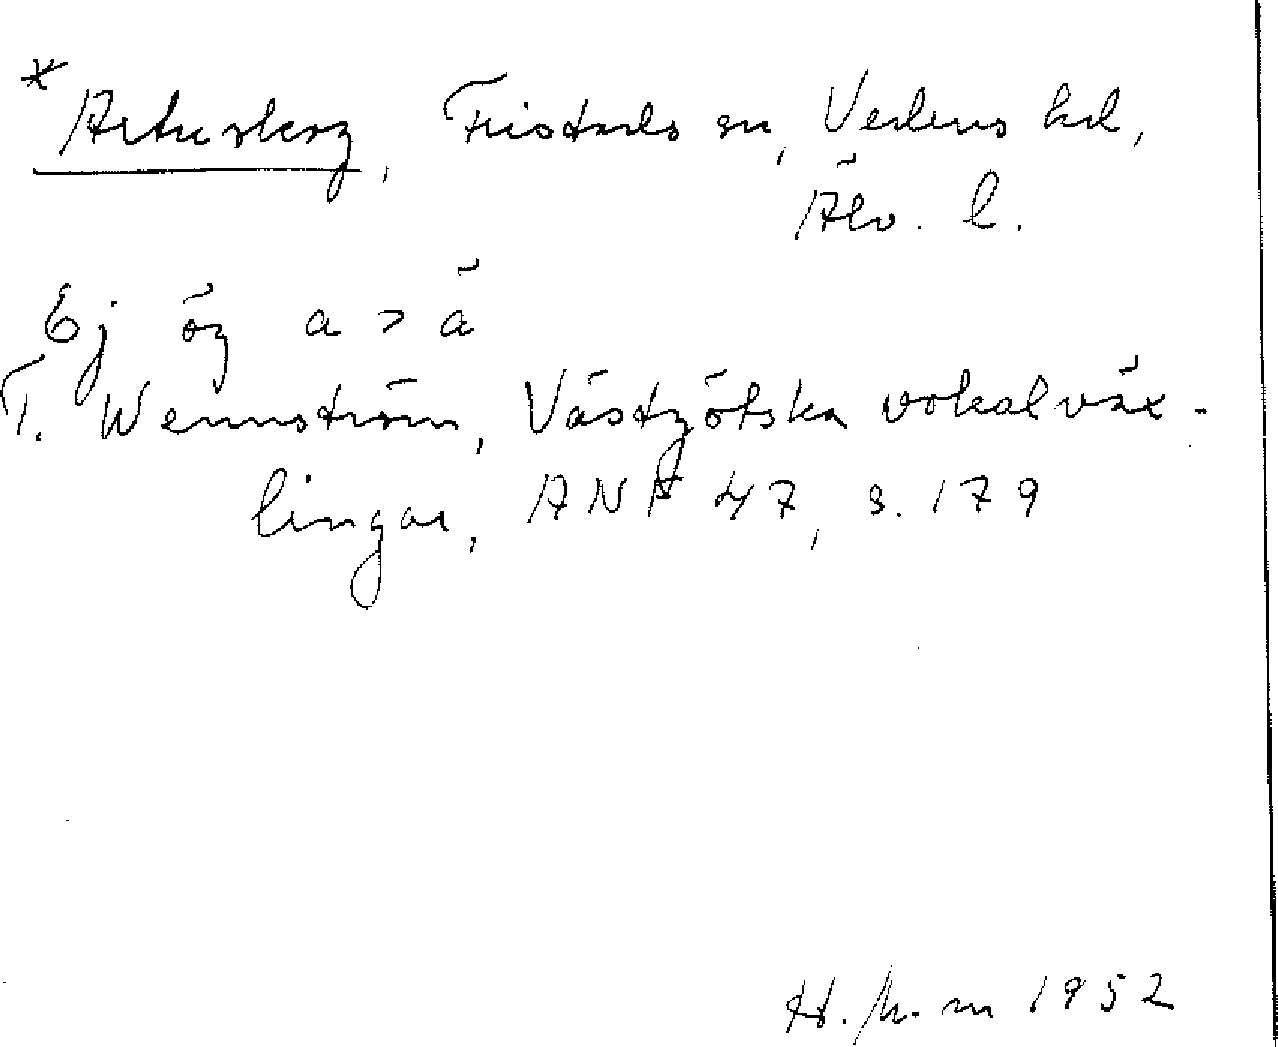 * Artuskog, Fristads sn, Vedens hd,
Älv. l.
Ej ög a > ä
T. Wennström, Västgötska vokalväx-
lingar, ANF 47, s. 179
1952